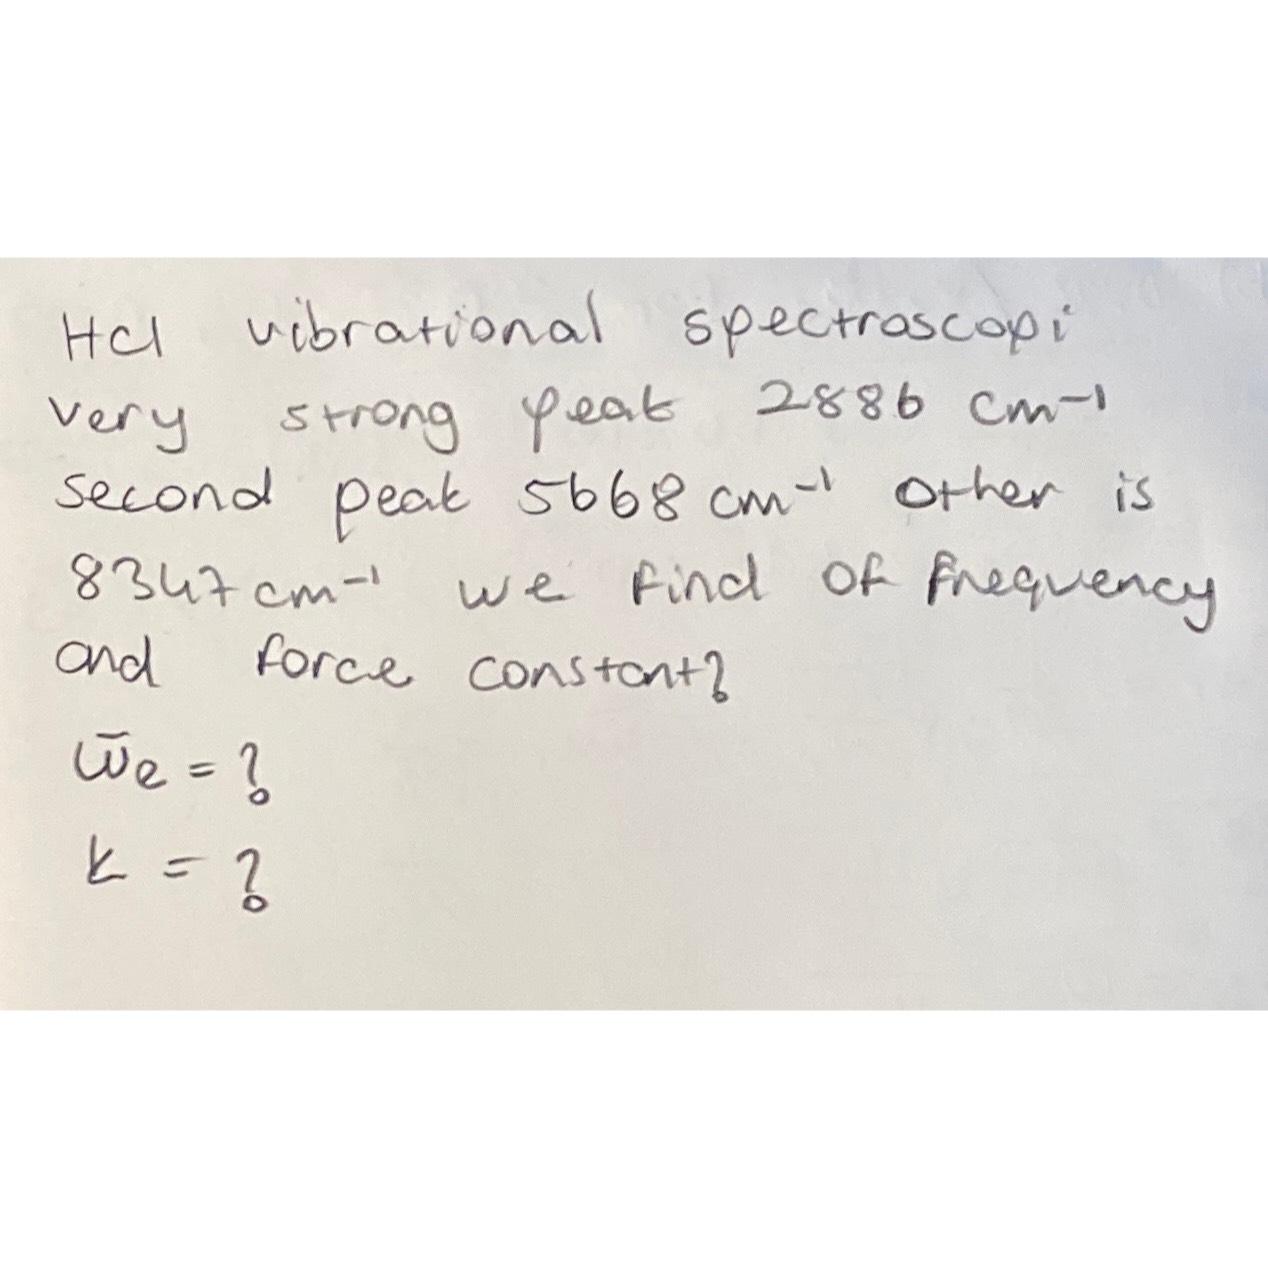 HCl vibrational spectroscopi
very strong peak 2886 cm-1
second peak 5668 cm-1 other is
8347 cm-1 we find of frequency
and force constant?
w̄e = ?
k = ?